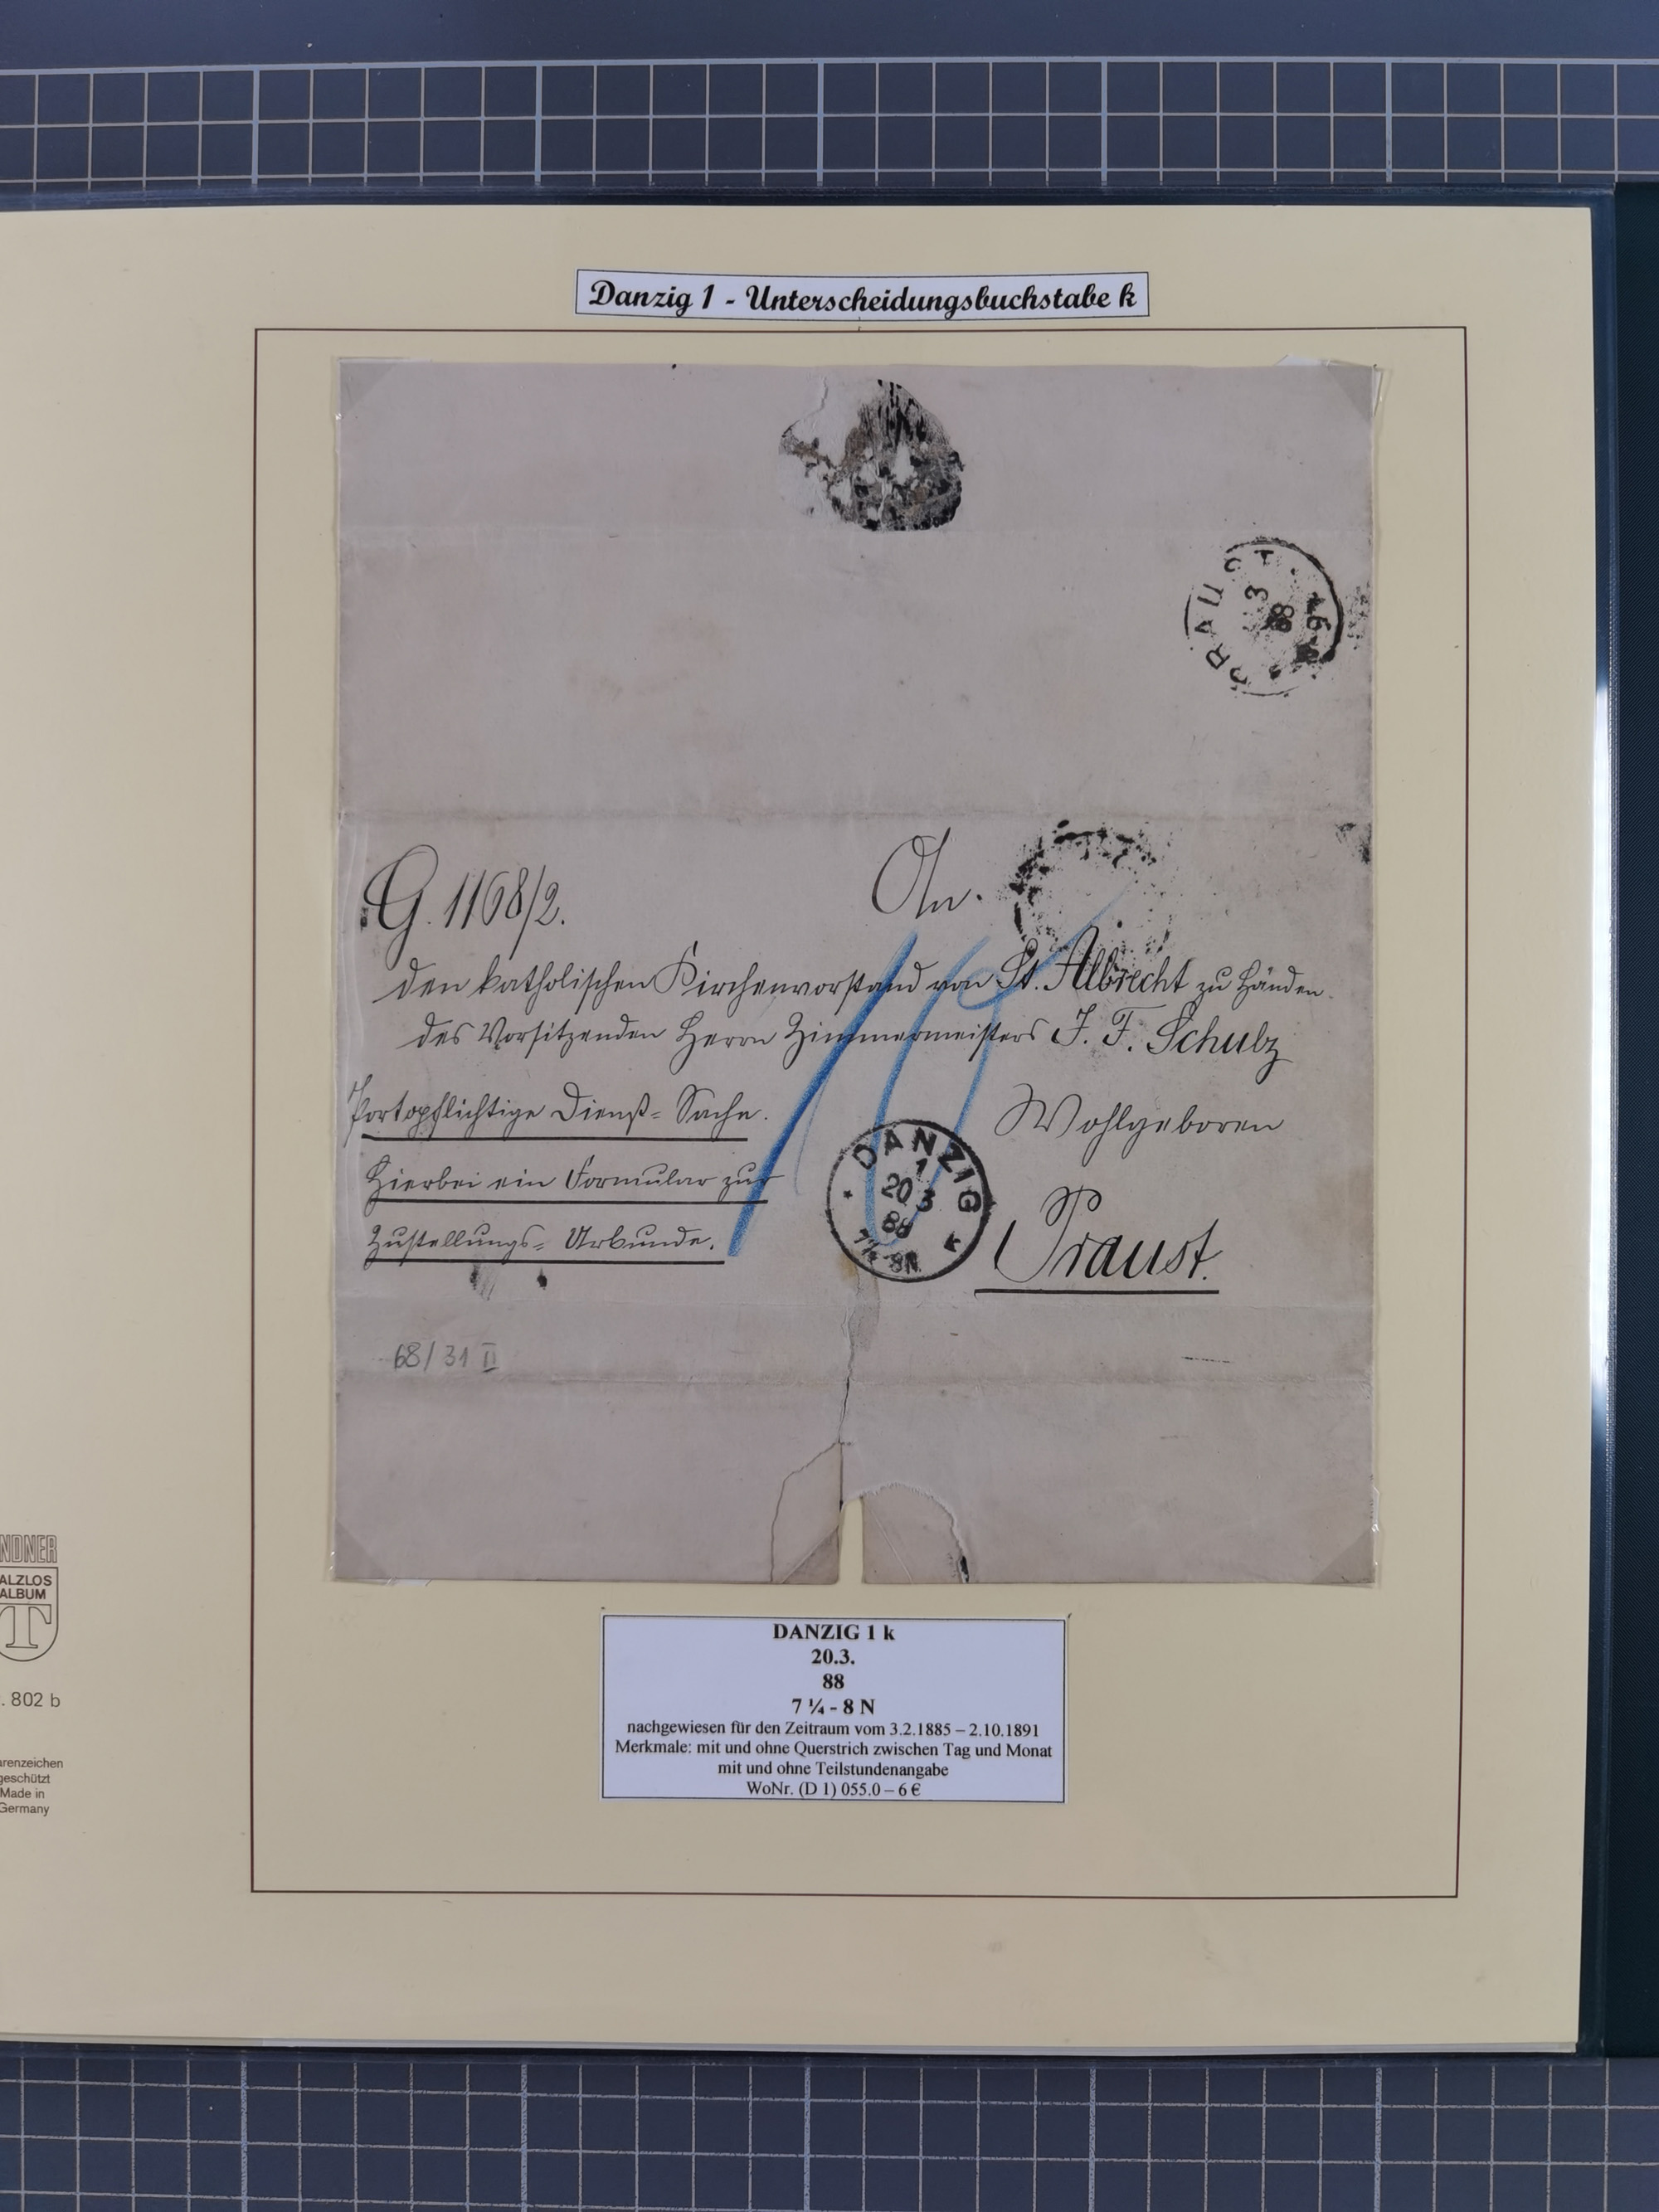 Danzig 1 - Unterscheidungsbuchstabe k
PRAUST
3
88
G. 1168/2.
An.
den katholischen Kirchenvorstand von St. Albrecht zu Händen
des Vorsitzenden Herrn Zimmermeisters J. F. Schulz
Portopflichtige Dienst= Sache.
Wohlgeboren
Hierbei ein Formular zur
Zustellungs= Urkunde.
10
DANZIG
1
20 3
88
7¼-8N
* k
Praust.
68/31 II
NDNER
ALZLOS
ALBUM
T
. 802 b
arenzeichen
geschützt
Made in
Germany
DANZIG 1 k
20.3.
88
7 ¼ - 8 N
nachgewiesen für den Zeitraum vom 3.2.1885 – 2.10.1891
Merkmale: mit und ohne Querstrich zwischen Tag und Monat
mit und ohne Teilstundenangabe
WoNr. (D 1) 055.0 – 6 €